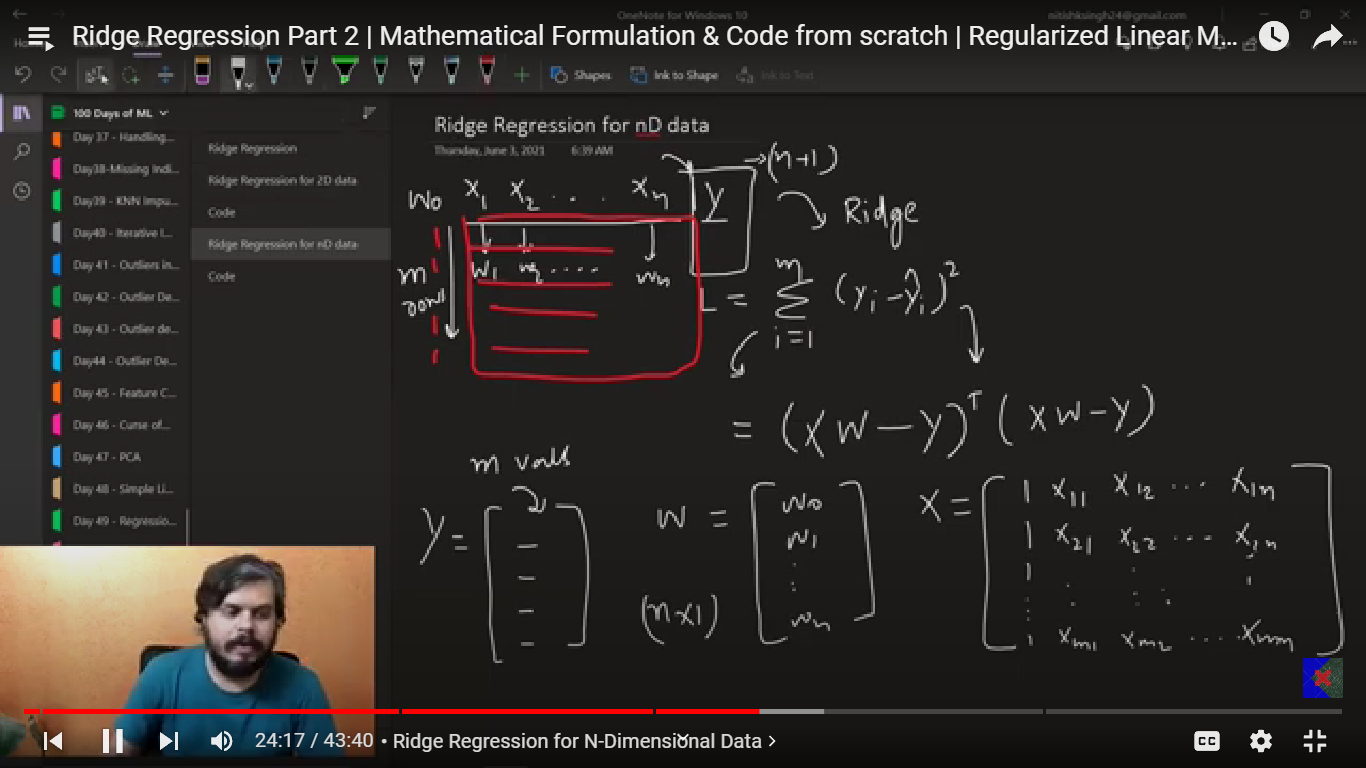 OneNote for Windows 10
nitishksingh24@gmail.com
Ridge Regression Part 2 | Mathematical Formulation & Code from scratch | Regularized Linear M...
Shapes
Ink to Shape
Ink to Text
100 Days of ML
Day 37 - Handling...
Day38-Missing Indi...
Day39 - KNN Impu...
Day40 - Iterative I...
Day 41 - Outliers in...
Day 42 - Outlier De...
Day 43 - Outlier de...
Day44 - Outlier De...
Day 45 - Feature C...
Day 46 - Curse of...
Day 47 - PCA
Day 48 - Simple Li...
Day 49 - Regressio...
Ridge Regression
Ridge Regression for 2D data
Code
Ridge Regression for nD data
Code
Ridge Regression for nD data
Thursday, June 3, 2021 6:39 AM
W₀ X₁ X₂ .... Xₙ Y →(n+1)
Ridge
W₁ W₂ ..... Wₙ
m
rows
L = Σᵢ₌₁ᵐ (yᵢ - ŷᵢ)²
= (XW - Y)ᵀ (XW - Y)
m vals
Y = [ - - - - ]
W = [ W₀ W₁ : Wₙ ]
(n×1)
X = [ 1 X₁₁ X₁₂ ... X₁ₙ
1 X₂₁ X₂₂ ... X₂ₙ
1 Xₘ₁ Xₘ₂ .... Xₘₙ ]
24:17 / 43:40 • Ridge Regression for N-Dimensional Data >
CC